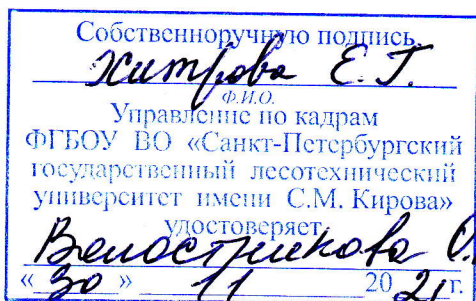 Собственноручную подпись
Хитрова Е.Г.
Ф.И.О.
Управление по кадрам
ФГБОУ ВО «Санкт-Петербургский
государственный лесотехнический
университет имени С.М. Кирова»
удостоверяет
«30» 11 2021 г.